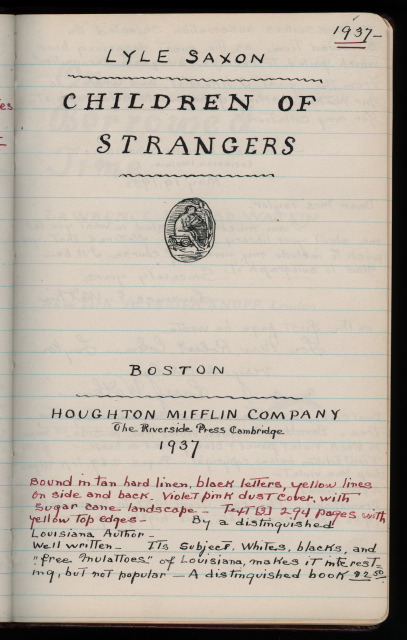 es
1937-
LYLE SAXON
CHILDREN OF
STRANGERS
BOSTON
HOUGHTON MIFFLIN COMPANY
The Riverside Press Cambridge
1937
Bound in tan hard linen, black letters, yellow lines
on side and back. Violet pink dust cover, with
sugar cane landscape - Text [3] 294 pages with
yellow top edges - By a distinguished
Louisiana Author -
Well written - Its Subject, Whites, blacks, and
"free mulattoes" of Louisiana, makes it interest-
ing, but not popular - A distinguished book $2.50